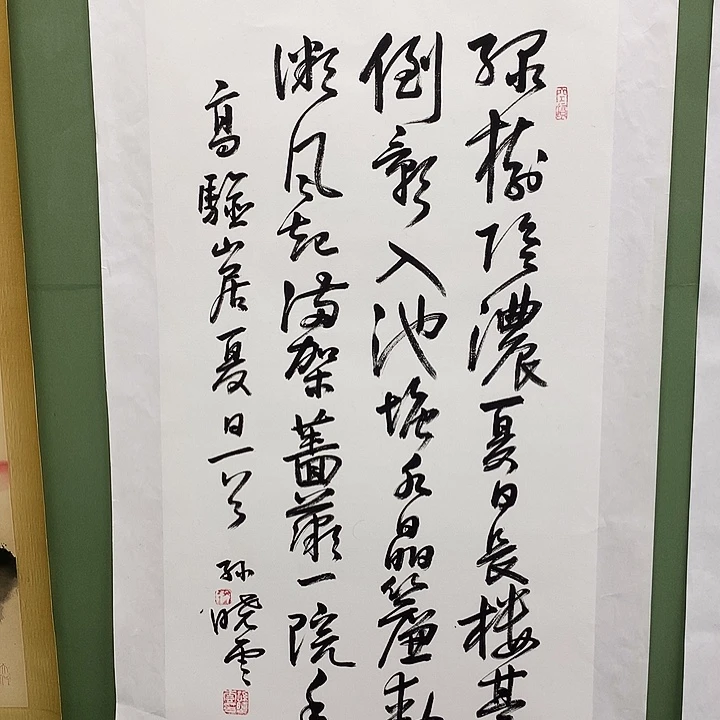 緑樹陰濃夏日長樓臺
倒影入池塘水晶簾動
微風起滿架薔薇一院香
高驗山居夏日一首 孫曉雲